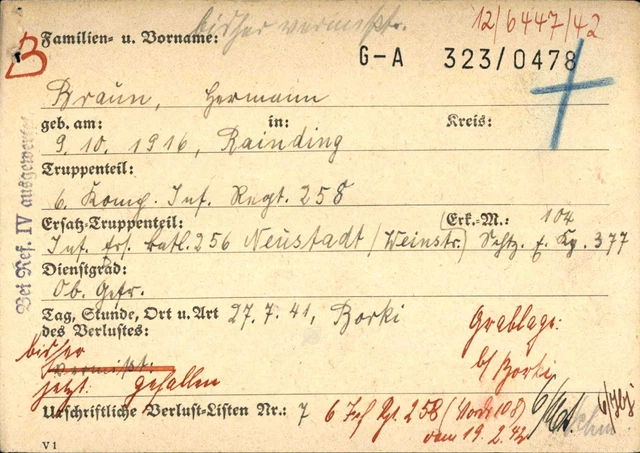 bisher vermißt.
12/6447/42
B
Familien- u. Vorname:
G-A 323/0478
Braun, Hermann
geb. am: in: Kreis:
9. 10. 1916, Rainding
Truppenteil:
6. Komp. Inf. Regt. 258
Ersatz-Truppenteil: Erk.-M.: 104
Inf. Ers. Batl. 256 Neustadt / Weinstr. Schtz. E. Kp. 377
Dienstgrad:
Ob. Gefr.
Tag, Stunde, Ort u. Art 27. 7. 41, Borki
des Verlustes:
Grablage:
b/ Borki
bisher
Vermißt.
jetzt: gefallen
Urschriftliche Verlust-Listen Nr.: 7 6 Inf Rgt. 258 (Nodr 108)
vom 19. 2. 42
V 1
Bei Ref. IV ausgewertet